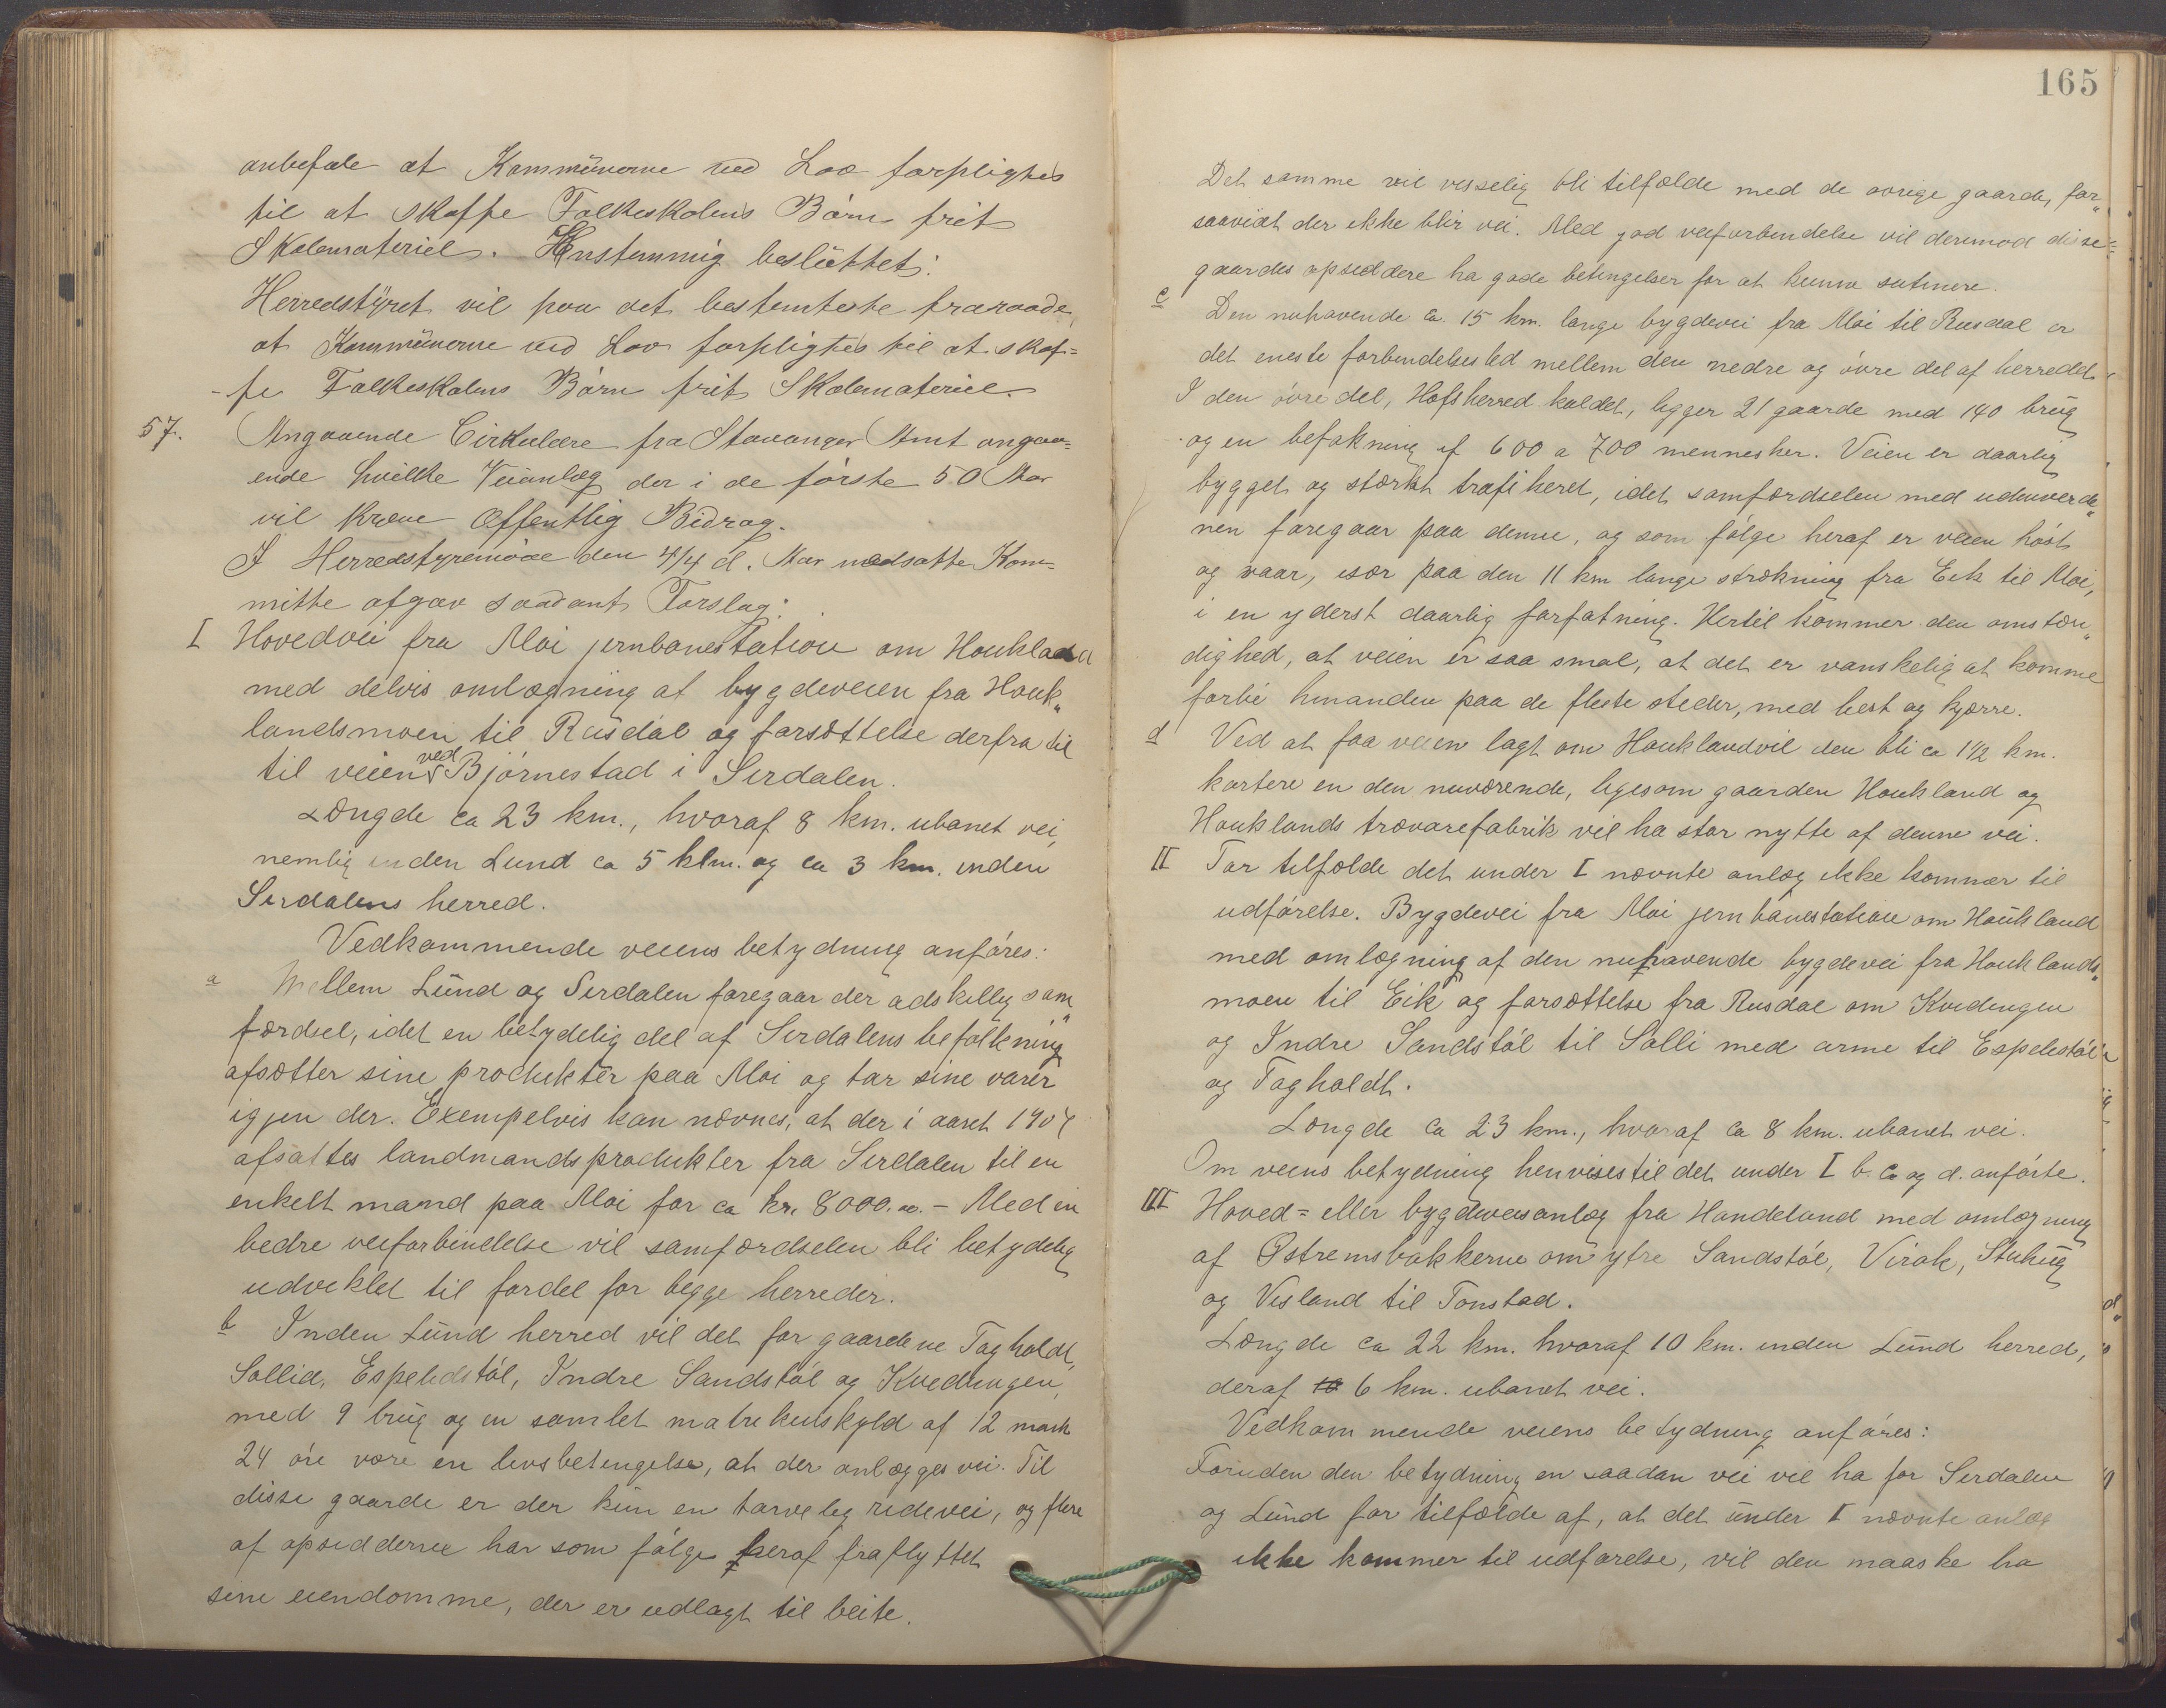 anbefale at Kommünerne ved Lov forpligtes
til at skaffe Folkeskolens Børn frit
Skolemateriel. Enstemmig beslüttet:
Herredstÿret vil paa det bestemteste fraraade,
at Kommünerne ved Lov forpligtes til at skaf=
-fe Folkeskolens Børn frit Skolemateriel.
57. Angaaende Cirkulære fra Stavanger Amt angaa=
ende hvilke Veianlæg der i de første 50 Aar
vil kræve Offentlig Bidrag.
I Herredstyremøde den 4/4 d. Aar nedsatte Kom=
mitte afgav saadant Forslag:
I Hovedvei fra Moi jernbanestation om Houkland
med delvis omlægning af bygdeveien fra Houk„
landsmoen til Rüsdal og forsættelse derfra til
til veien ved Bjørnestad i Sirdalen.
Længde ca 23 km., hvoraf 8 km. ubanet vei,
nemlig inden Lund ca 5 klm. og ca 3 km. inden
Sirdalens herred.
Vedkommende veiens betydning anføres:
a Mellem Lünd og Sirdalen foregaar der adskillig sam„
færdsel, idet en betydelig del af Sirdalens befolkning
afsætter sine produkter paa Moi og tar sine varer
igjen der. Exempelvis kan nævnes, at der i aaret 1904
afsattes landmandsprodukter fra Sirdalen til en
enkelt mand paa Moi for ca kr. 8000.00. - Med en
bedre veiforbindelse vil samfærdselen bli betydelig
udviklet til fordel for begge herreder.
b Inden Lünd herred vil det for gaardene Tagholdt,
Sollid, Espelidstøl, Indre Sandstøl og Kvedingen,
med 9 brüg og en samlet matrikulskyld af 12 mark
24 øre være en livsbetingelse, at der anlægges vei. Til
disse gaarde er der kün en tarvelig ridevei, og flere
af opsidderne har som følge heraf fraflyttet
sine eiendomme, der er udlagt til beite.
165
Det samme vil visselig bli tilfælde med de øvrige gaarde, for„
saavidt der ikke blir vei. Med god veiforbindelse vil derimod disse=
gaardes opsiddere ha gode betingelser for at kunne subsistere.
c Den nuhavende ca. 15 km. lange bygdevei fra Moi til Rusdal er
det eneste forbindelsesled mellem den nedre og øvre del af herredet.
I den øvre del, Hofsherred kaldet, ligger 21 gaarde med 140 brüg
og en befolkning af 600 a 700 mennesker. Veien er daarlig
bygget og stærkt trafikeret, idet samfærdselen med udenverde„
nen foregaar paa denne, og som følge heraf er veien høst
og vaar, især paa den 11 km lange strækning fra Eik til Moi,
i en yderst daarlig forfatning. Hertil kommer den omstæn„
dighed, at veien er saa smal, at det er vanskelig at komme
forbi hinanden paa de fleste steder, med hest og kjærre.
d Ved at faa veien lagt om Houkland vil den bli ca 1½ km.
kortere en den nuværende, ligesom gaarden Houkland og
Houklands trævarefabrik vil ha stor nytte af denne vei.
II For tilfælde det under I nævnte anlæg ikke kommer til
udførelse. Bygdevei fra Moi jernbanestation om Houkland
med omlægning af den nuhavende bygdevei fra Houklands„
moen til Eik og forsættelse fra Rusdal om Kvedingen
og Indre Sandstøl til Solli med arme til Espelistøl
og Tagholdt.
Længde ca 23 km., hvoraf ca 8 km. ubanet vei.
Om veiens betydning henvises til det under I b. c og d. anførte.
III Hoved= eller bygdeveisanlæg fra Handeland med omlægning
af Østremsbakkerne om ytre Sandstøl, Virak,
og Visland til Tonstad.
Længde ca 22 km. hvoraf 10 km. inden Lünd herred,
deraf 10 6 km. ubanet vei.
Vedkommende veiens betydning anføres:
Foruden den betydning en saadan vei vil ha for Sirdalen
og Lünd for tilfælde af, at det ünder I nævnte anlæg
ikke kommer til udførelse, vil den maaske ha